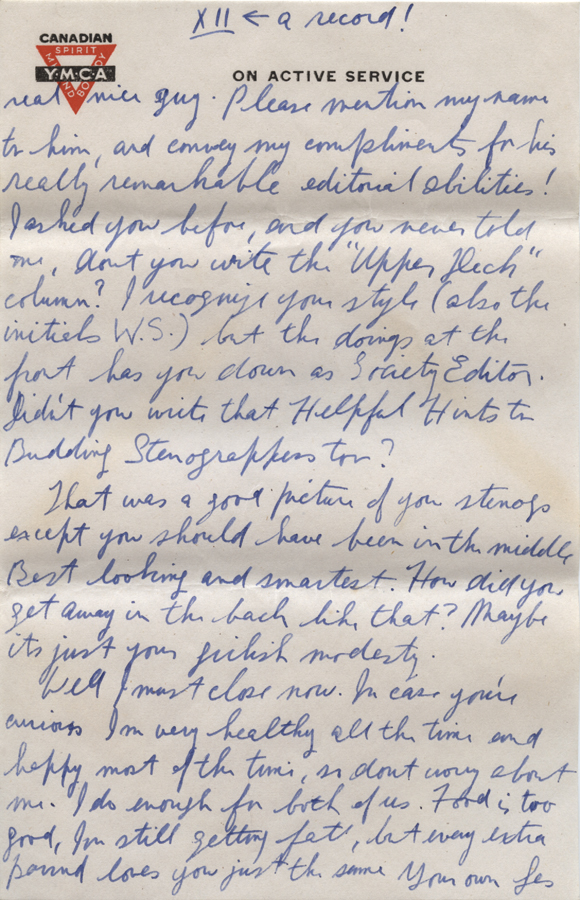 XII ← a record!
CANADIAN
SPIRIT
MIND Y·M·C·A BODY
ON ACTIVE SERVICE
real nice guy. Please mention my name
to him, and convey my compliments for his
really remarkable editorial abilities!
I asked you before, and you never told
me, dont you write the "Upper Deck"
column? I recognize your style (also the
initials W.S.) but the doings at the
front has you down as Society Editor.
Didn't you write that Helpful Hints to
Budding Stenographers too?
That was a good picture of you stenogs
except you should have been in the middle
Best looking and smartest. How did you
get away in the back like that? Maybe
its just your girlish modesty.
Well I must close now. In case you're
curious I'm very healthy all the time and
happy most of the time, so dont worry about
me. I do enough for both of us. Food is too
good, I'm still getting fat, but every extra
pound loves you just the same Your own Les